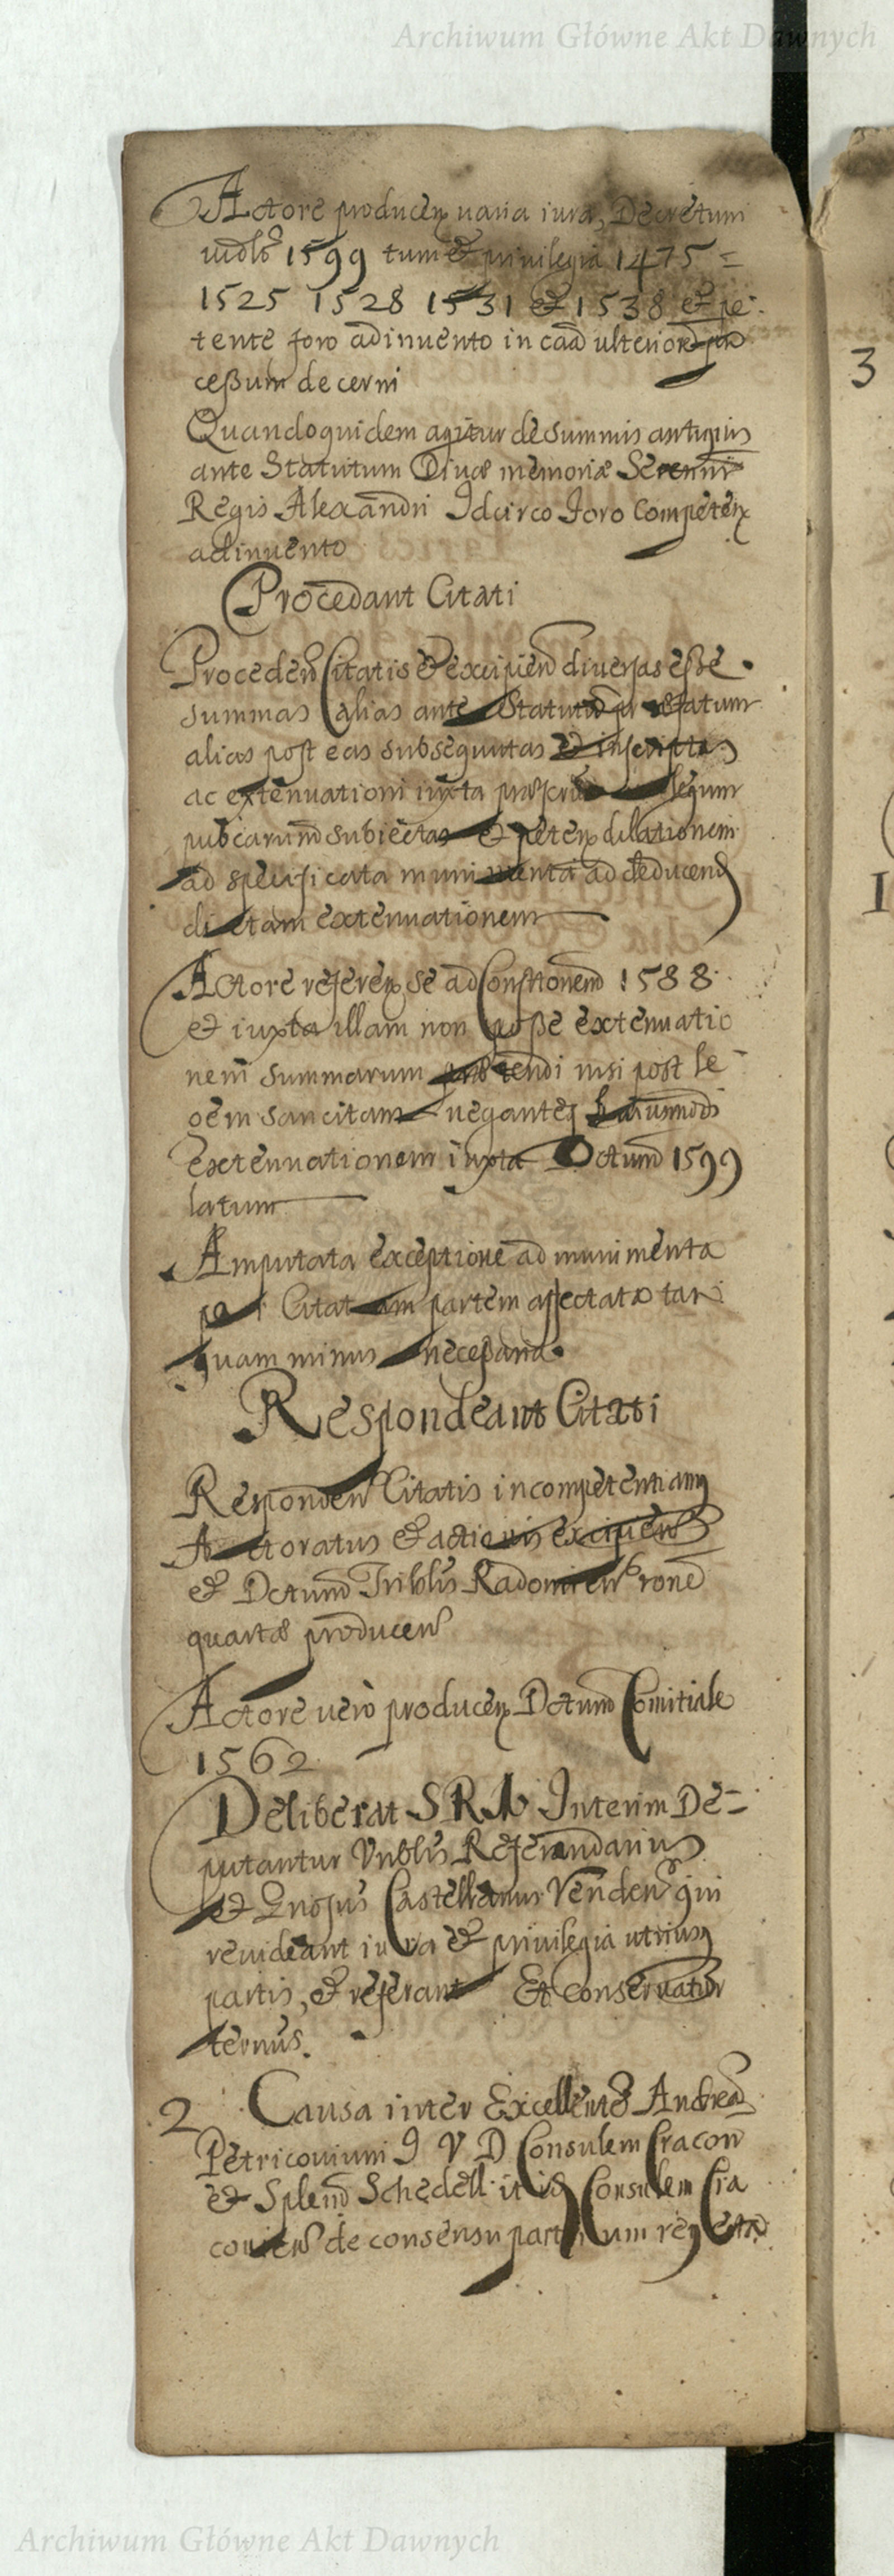 Archiwum Główne Akt Dawnych
Actore producen varia iura, Decretum
1599 tum et privilegia 1475 =
1525 1528 1531 et 1538 et pe-
tente foro adinvento in caā ulteriorem pro
ceßum decerni
Quandoquidem agitur de summis antiquis
ante Statutum Divæ memoriæ Serenmi
Regis Alexandri Idcirco Foro Competen
adinvento
Procedant Citati
3
Proceden Citatis et excipien diversas eße
summas alias ante Statutū præfatum
alias post eas subsequutas et inscriptas
ac extenuationi iuxta legum
publicarum subiectas et peten dilationem
ad specificata munimenta ad deducend
dictam extenuationem
I
Actore referen se ad Constōnem 1588
et iuxta illam non poße extenuatio
nem summarum prætendi nisi post le-
gem sancitam negante huiusmodi
extenuationem iuxta Dctum 1599
latum
Amputata exceptione ad munimenta
per Citatam partem affectata tan
quam minus neceßaria
Respondeant Citati
Responden Citatis incompetentiam
Actoratus et actionis excipien
et Dctum Triblis Radomien ronē
quartæ producen
Actore vero producen Dctum Comitiale
1562
Deliberat SRM Interim De=
putantur Referendarius
et Gnosus Castellanus Venden qui
revideant iura et privilegia utriusq
partis, et referant Et conservatur
ternus.
2 Causa inter Excellentē Andreā
Petricovium I V D Consulem Cracon
et Splend Schedell Consulem Cra
covien de consensu partium reiecta
Archiwum Główne Akt Dawnych